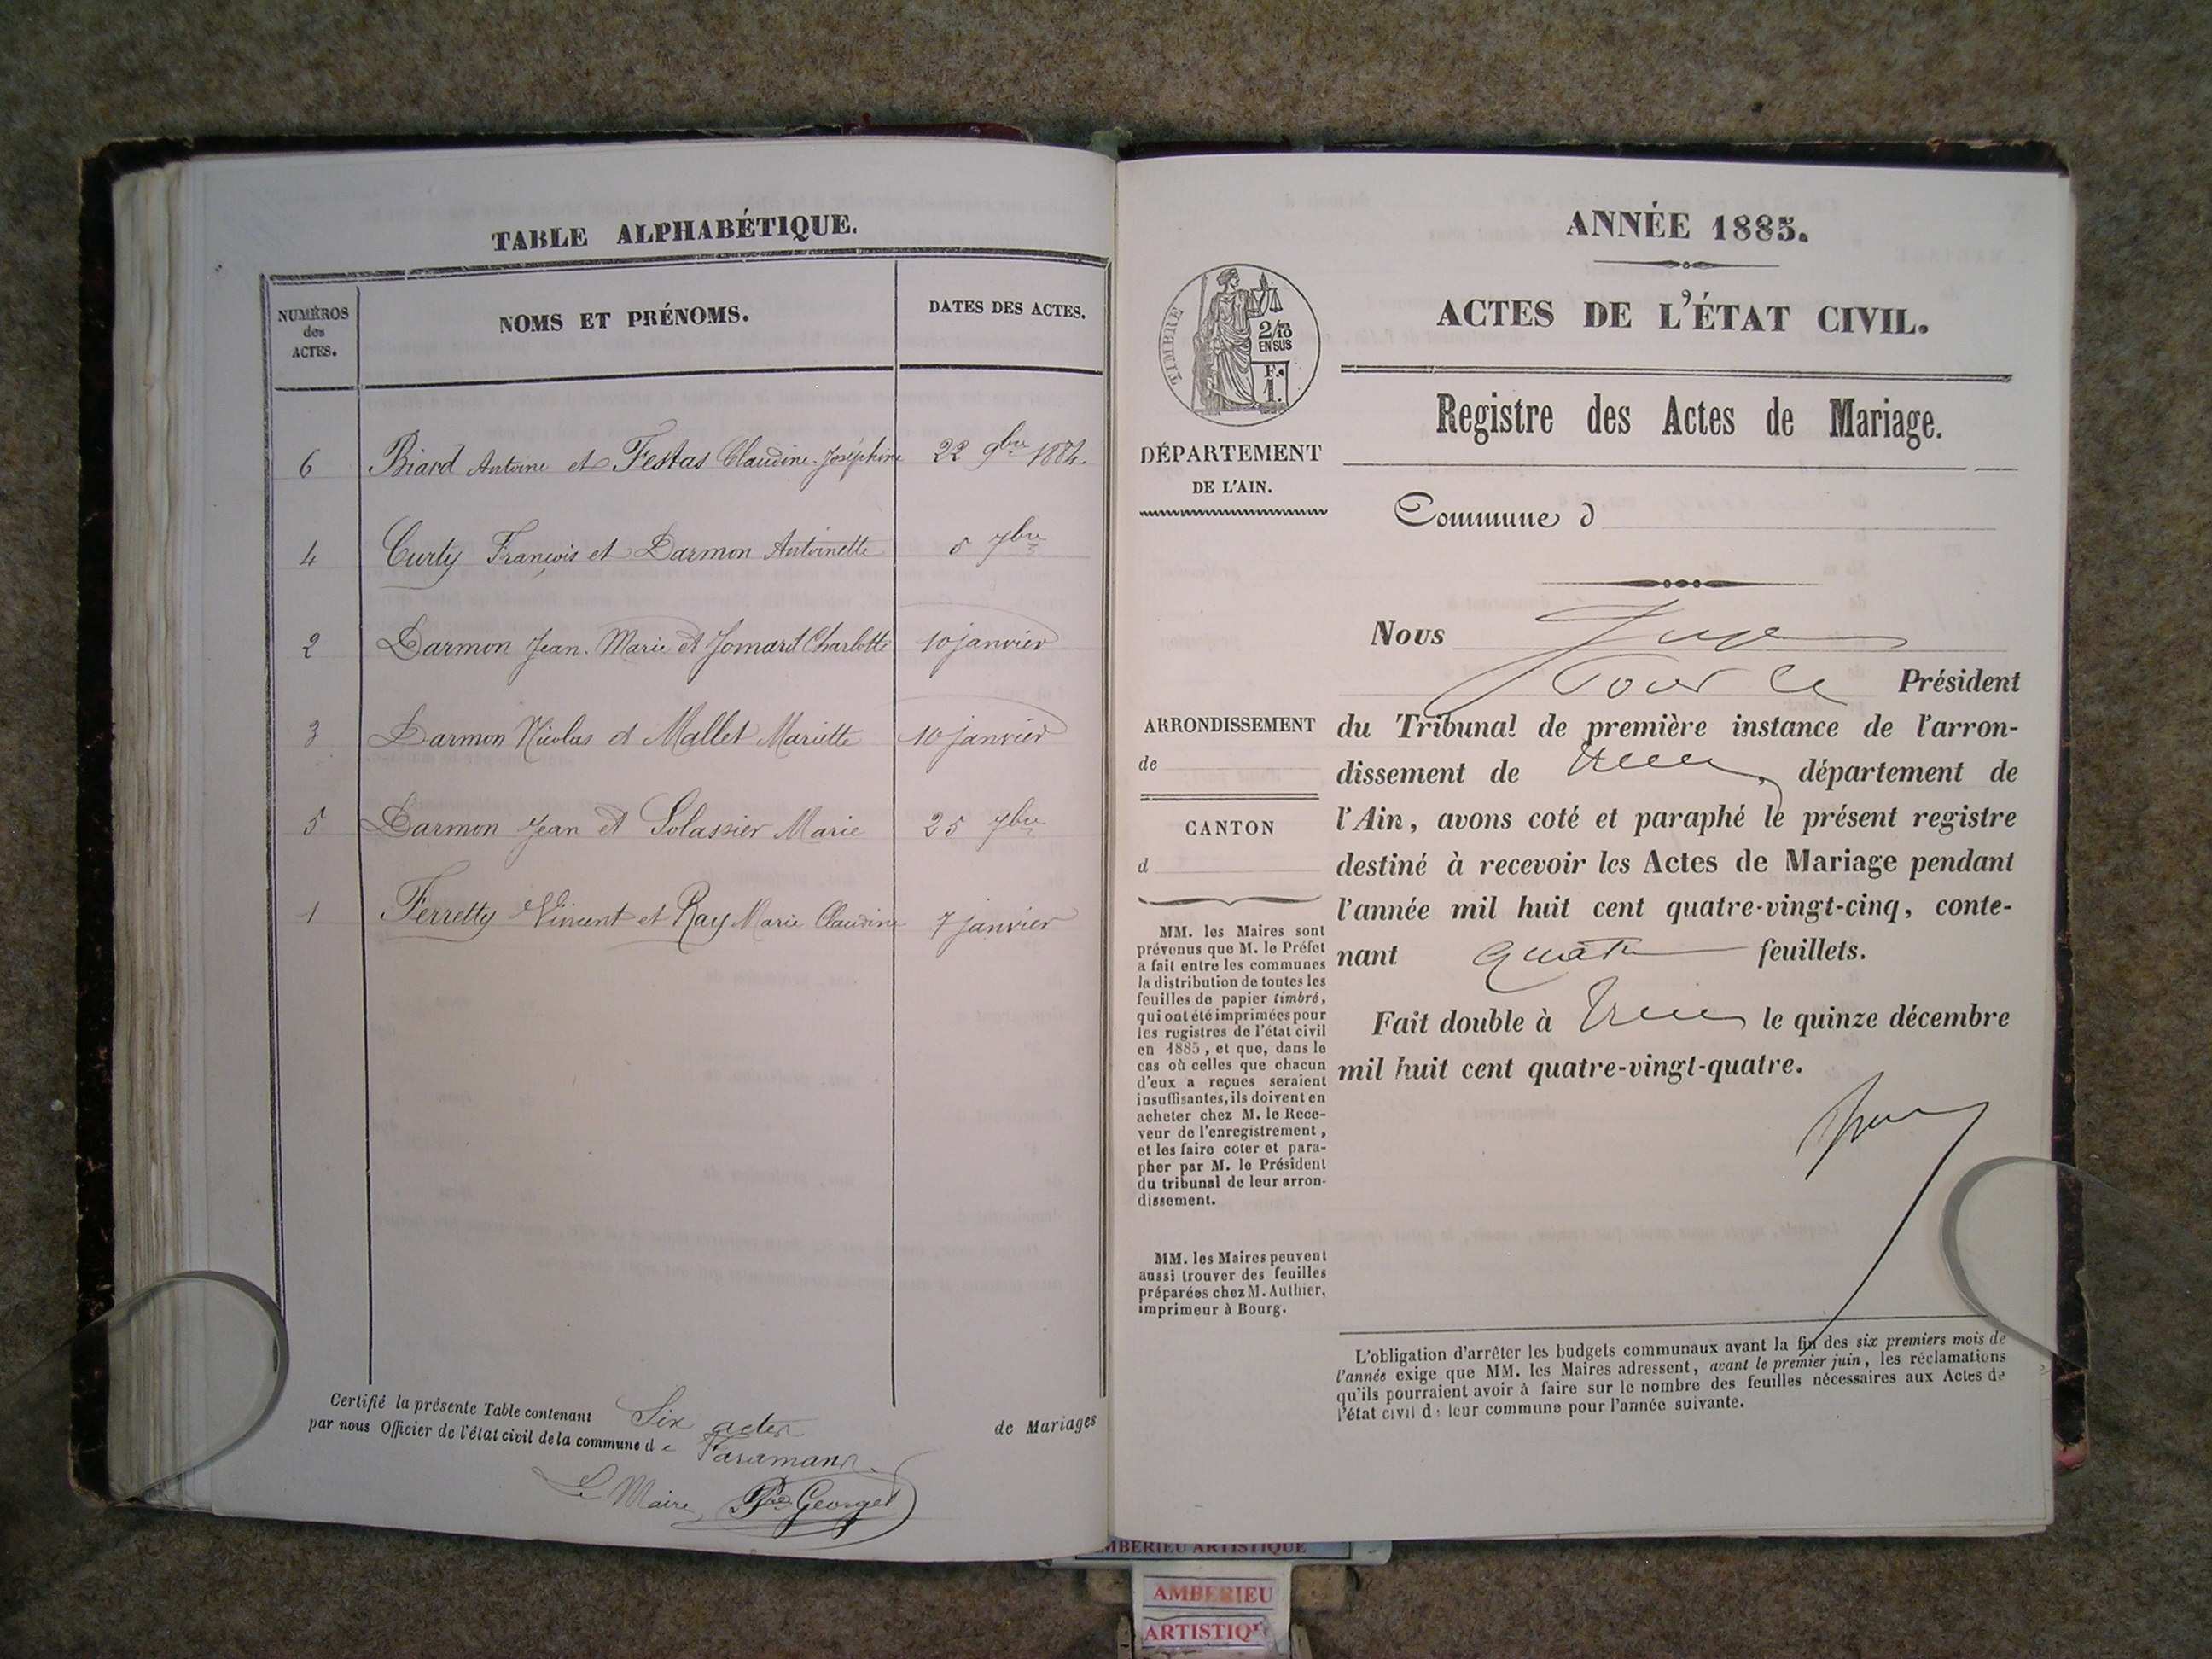 TABLE ALPHABÉTIQUE.
NUMÉROS des ACTES.
NOMS ET PRÉNOMS.
DATES DES ACTES.
6 Biard Antoine et Festas Claudine Joséphine 22 9bre 1884.
4 Curty François et Darmon Antoinette 5 7bre
2 Darmon Jean Marie et Jomard Charlotte 10 janvier
3 Darmon Nicolas et Mallet Mariette 10 janvier
5 Darmon Jean et Solassier Marie 25 7bre
1 Ferretty Vincent et Ray Marie Claudine 7 janvier
Certifié la présente Table contenant Six actes de Mariages
par nous Officier de l'état civil de la commune de Faramans.
Le Maire Georget
ANNÉE 1885.
ACTES DE L'ÉTAT CIVIL.
Registre des Actes de Mariage.
TIMBRE
2/10
EN SUS
F.
1.
DÉPARTEMENT
DE L'AIN.
Commune d
ARRONDISSEMENT
de
CANTON
d
MM. les Maires sont
prévenus que M. le Préfet
a fait entre les communes
la distribution de toutes les
feuilles de papier timbré,
qui ont été imprimées pour
les registres de l'état civil
en 1885, et que, dans le
cas où celles que chacun
d'eux a reçues seraient
insuffisantes, ils doivent en
acheter chez M. le Rece-
veur de l'enregistrement,
et les faire coter et para-
pher par M. le Président
du tribunal de leur arron-
dissement.
MM. les Maires peuvent
aussi trouver des feuilles
préparées chez M. Authier,
imprimeur à Bourg.
Nous Juge
Pour le Président
du Tribunal de première instance de l'arron-
dissement de Trévoux, département de
l'Ain, avons coté et paraphé le présent registre
destiné à recevoir les Actes de Mariage pendant
l'année mil huit cent quatre-vingt-cinq, conte-
nant quatre feuillets.
Fait double à Trévoux le quinze décembre
mil huit cent quatre-vingt-quatre.
L'obligation d'arrêter les budgets communaux avant la fin des six premiers mois de
l'année exige que MM. les Maires adressent, avant le premier juin, les réclamations
qu'ils pourraient avoir à faire sur le nombre des feuilles nécessaires aux Actes de
l'état civil de leur commune pour l'année suivante.
AMBERIEU ARTISTIQUE
AMBERIEU
ARTISTIQ